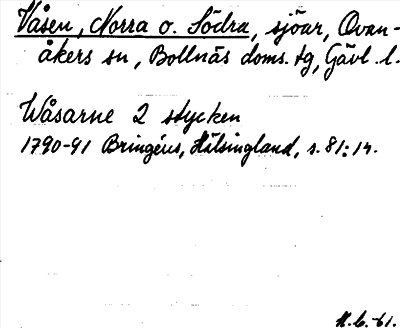 Våsen, Norra o. Södra, sjöar, Ovan-
åkers sn, Bollnäs doms. tg, Gävl. l.
Wåsarne 2 stycken
1790-91 Bringéus, Hälsingland, s. 81: 14.
H. G. -61.